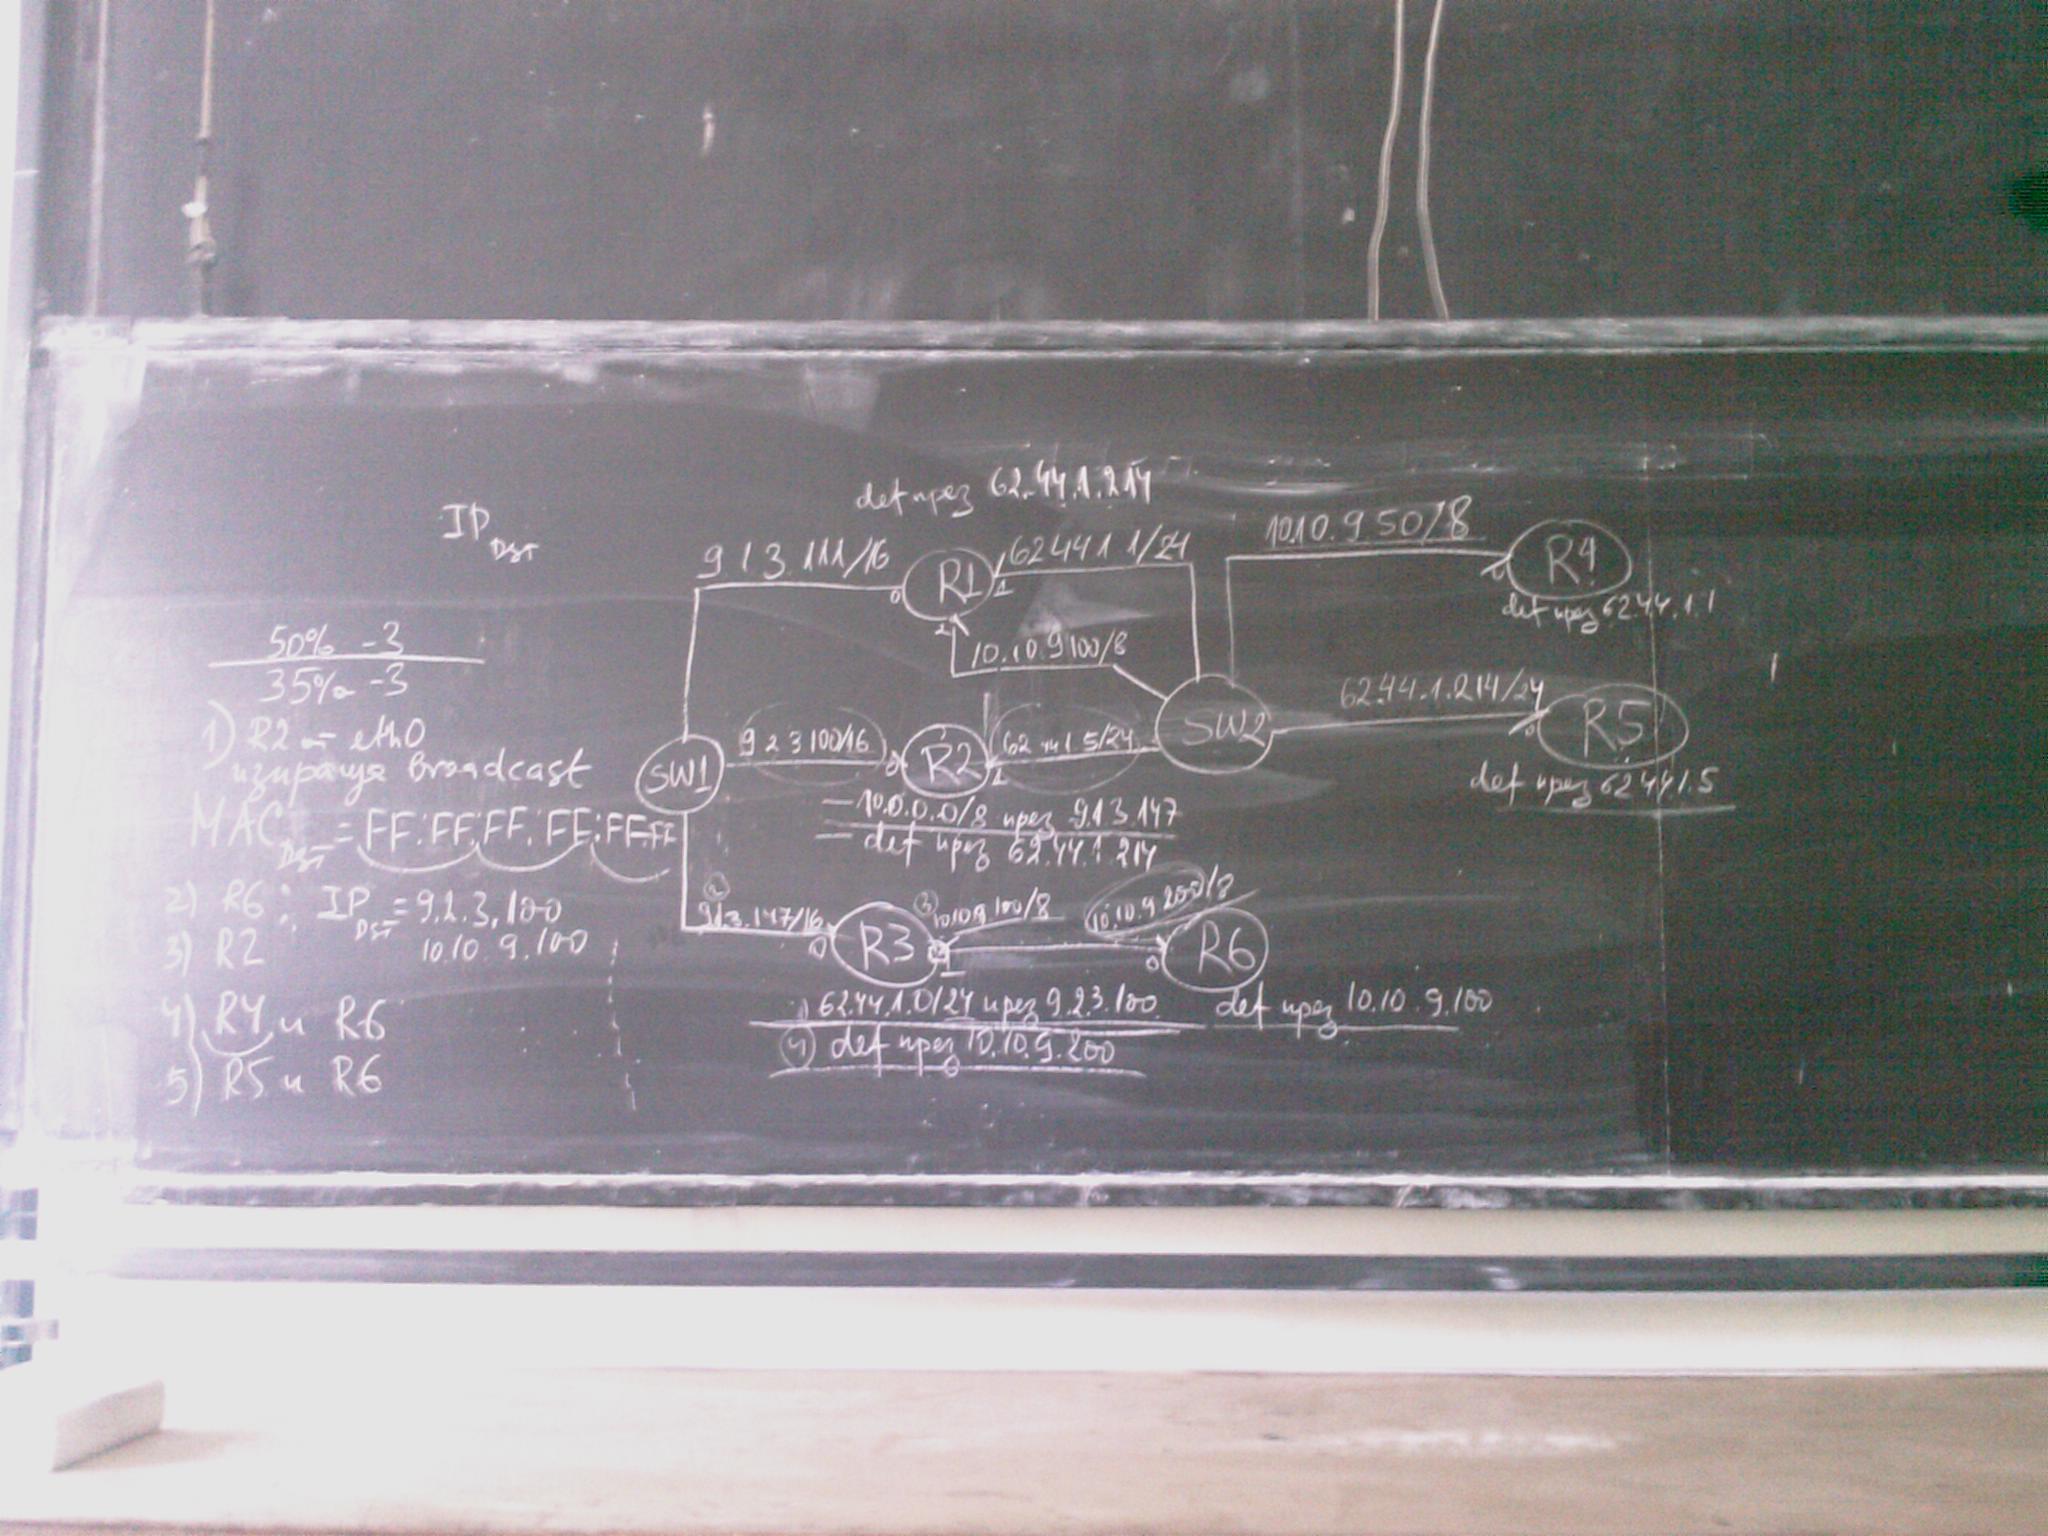 def през 62.44.1.214
IP DST
9.1.3.111/16
R1
62.44.1.1/24
10.10.9.50/8
R4
0
1
2
0
def през 62.44.1.1
10.10.9.100/8
50% -3
35% -3
1) R2 от eth0
изпраща broadcast
MAC DST = FF:FF:FF:FF:FF:FF
2) R6: IP DST = 9.2.3.100
3) R2 10.10.9.100
4) R4 и R6
5) R5 и R6
SW1
9.2.3.100/16
0
R2
1
62.44.1.5/24
SW2
62.44.1.214/24
0
R5
def през 62.44.1.5
— 10.0.0.0/8 през 9.1.3.147
— def през 62.44.1.214
2
9.1.3.147/16
0
R3
3
10.10.9.100/8
1
10.10.9.200/8
0
R6
1) 62.44.1.0/24 през 9.2.3.100
def през 10.10.9.100
4) def през 10.10.9.200